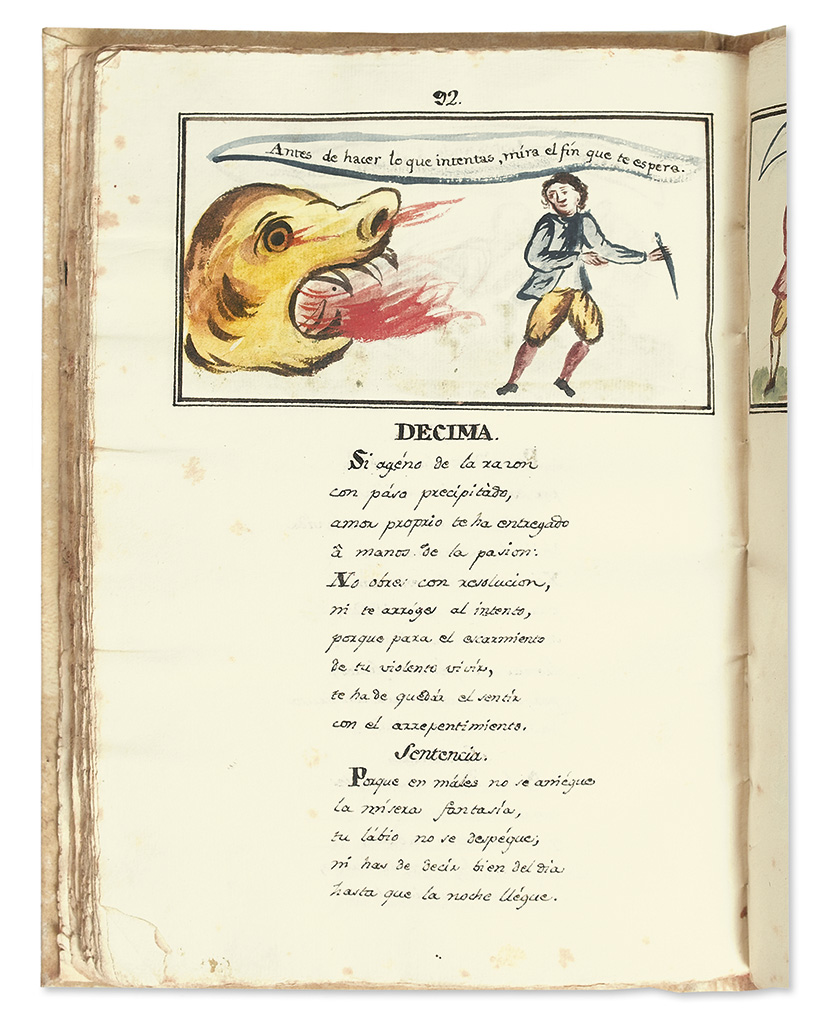 92.
Antes de hacer lo que intentas, mira el fin que te espera.
DECIMA.
Si agéno de la razon
con páso precipitàdo,
amor proprio te ha entregado
â manos de la pasion:
No obres con resolucion,
ni te arróges al intento,
porque para el escarmiento
de tu violento vivír,
te ha de quedár el sentír
con el arrepentimiento.
Sentencia.
Porque en máles no se aniégue
la mísera fantasía,
tu lábio no se despégue;
ni has de decír bien del dia
hasta que la noche llégue.